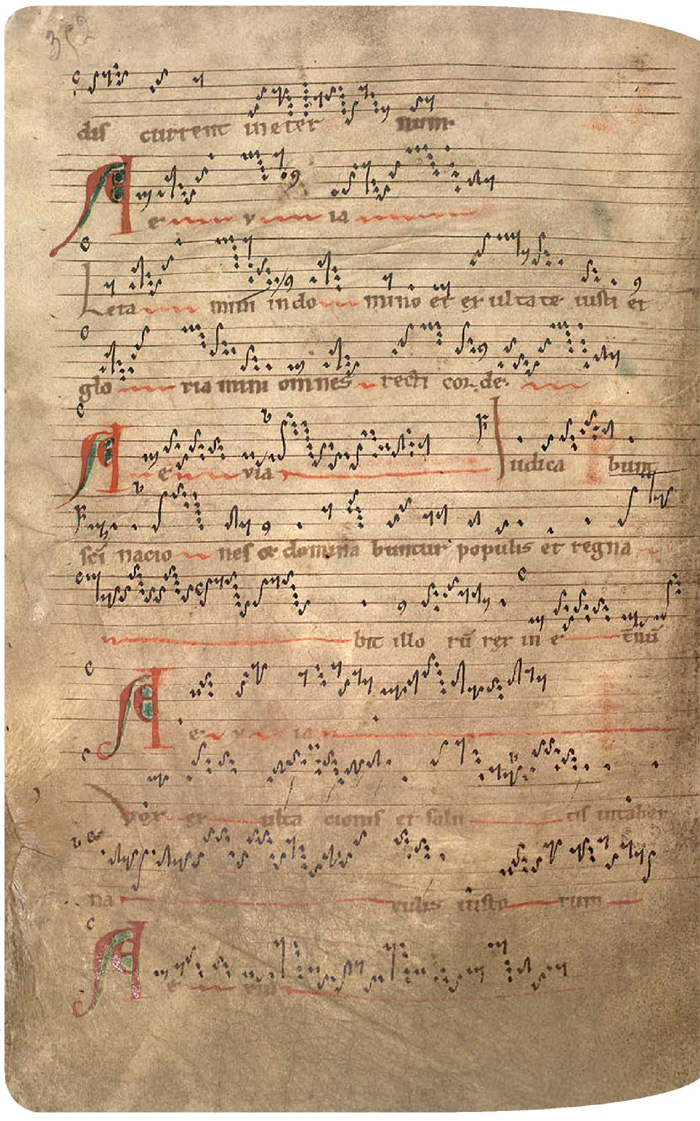 352
dif current in eter num.
Ae v ia
Leta mini in do mino et exultate iusti et
glo riamini omnes recti corde.
Ae v via Iudica bunt
sci nacio nes & domina buntur populis et regna
bit illo rū rex in e tnū
Ae v ia
Vox ex ulta cionis et salu tis in taber
na culis iusto rum
Ae via